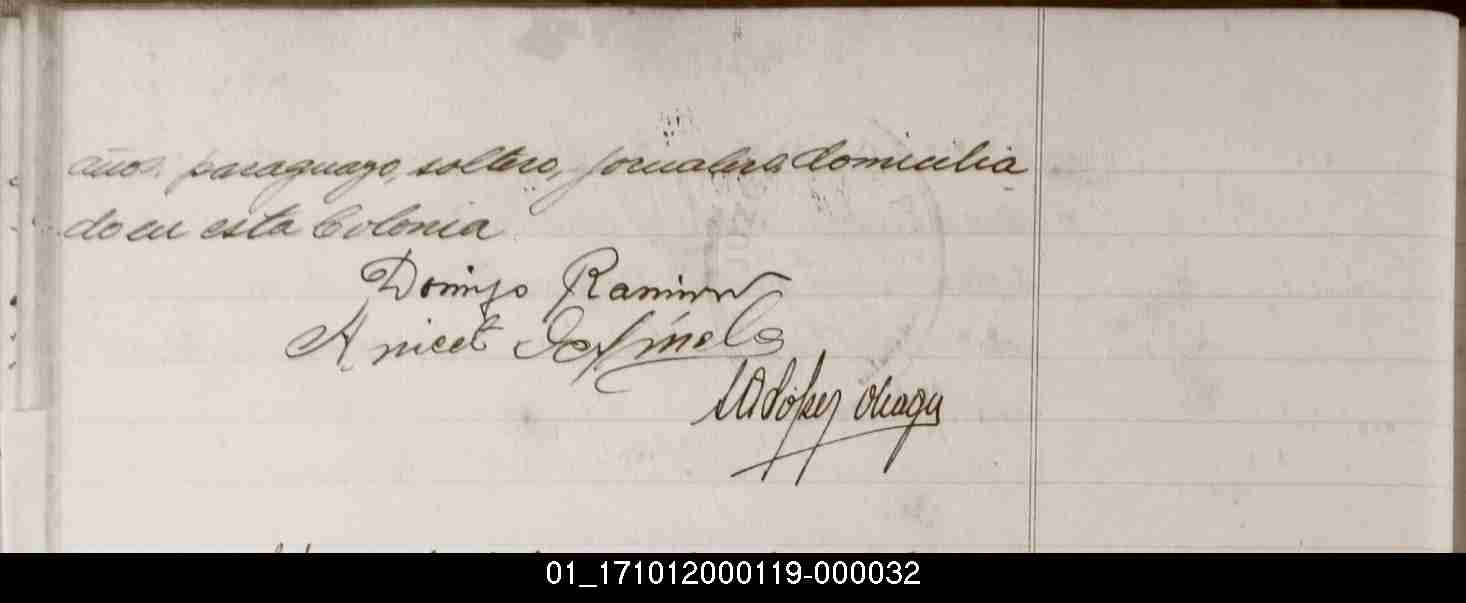 años. paraguayo, soltero, jornalero, domicilia
do en esta Colonia
Domingo Ramirez
Anicet
López
01_171012000119-000032